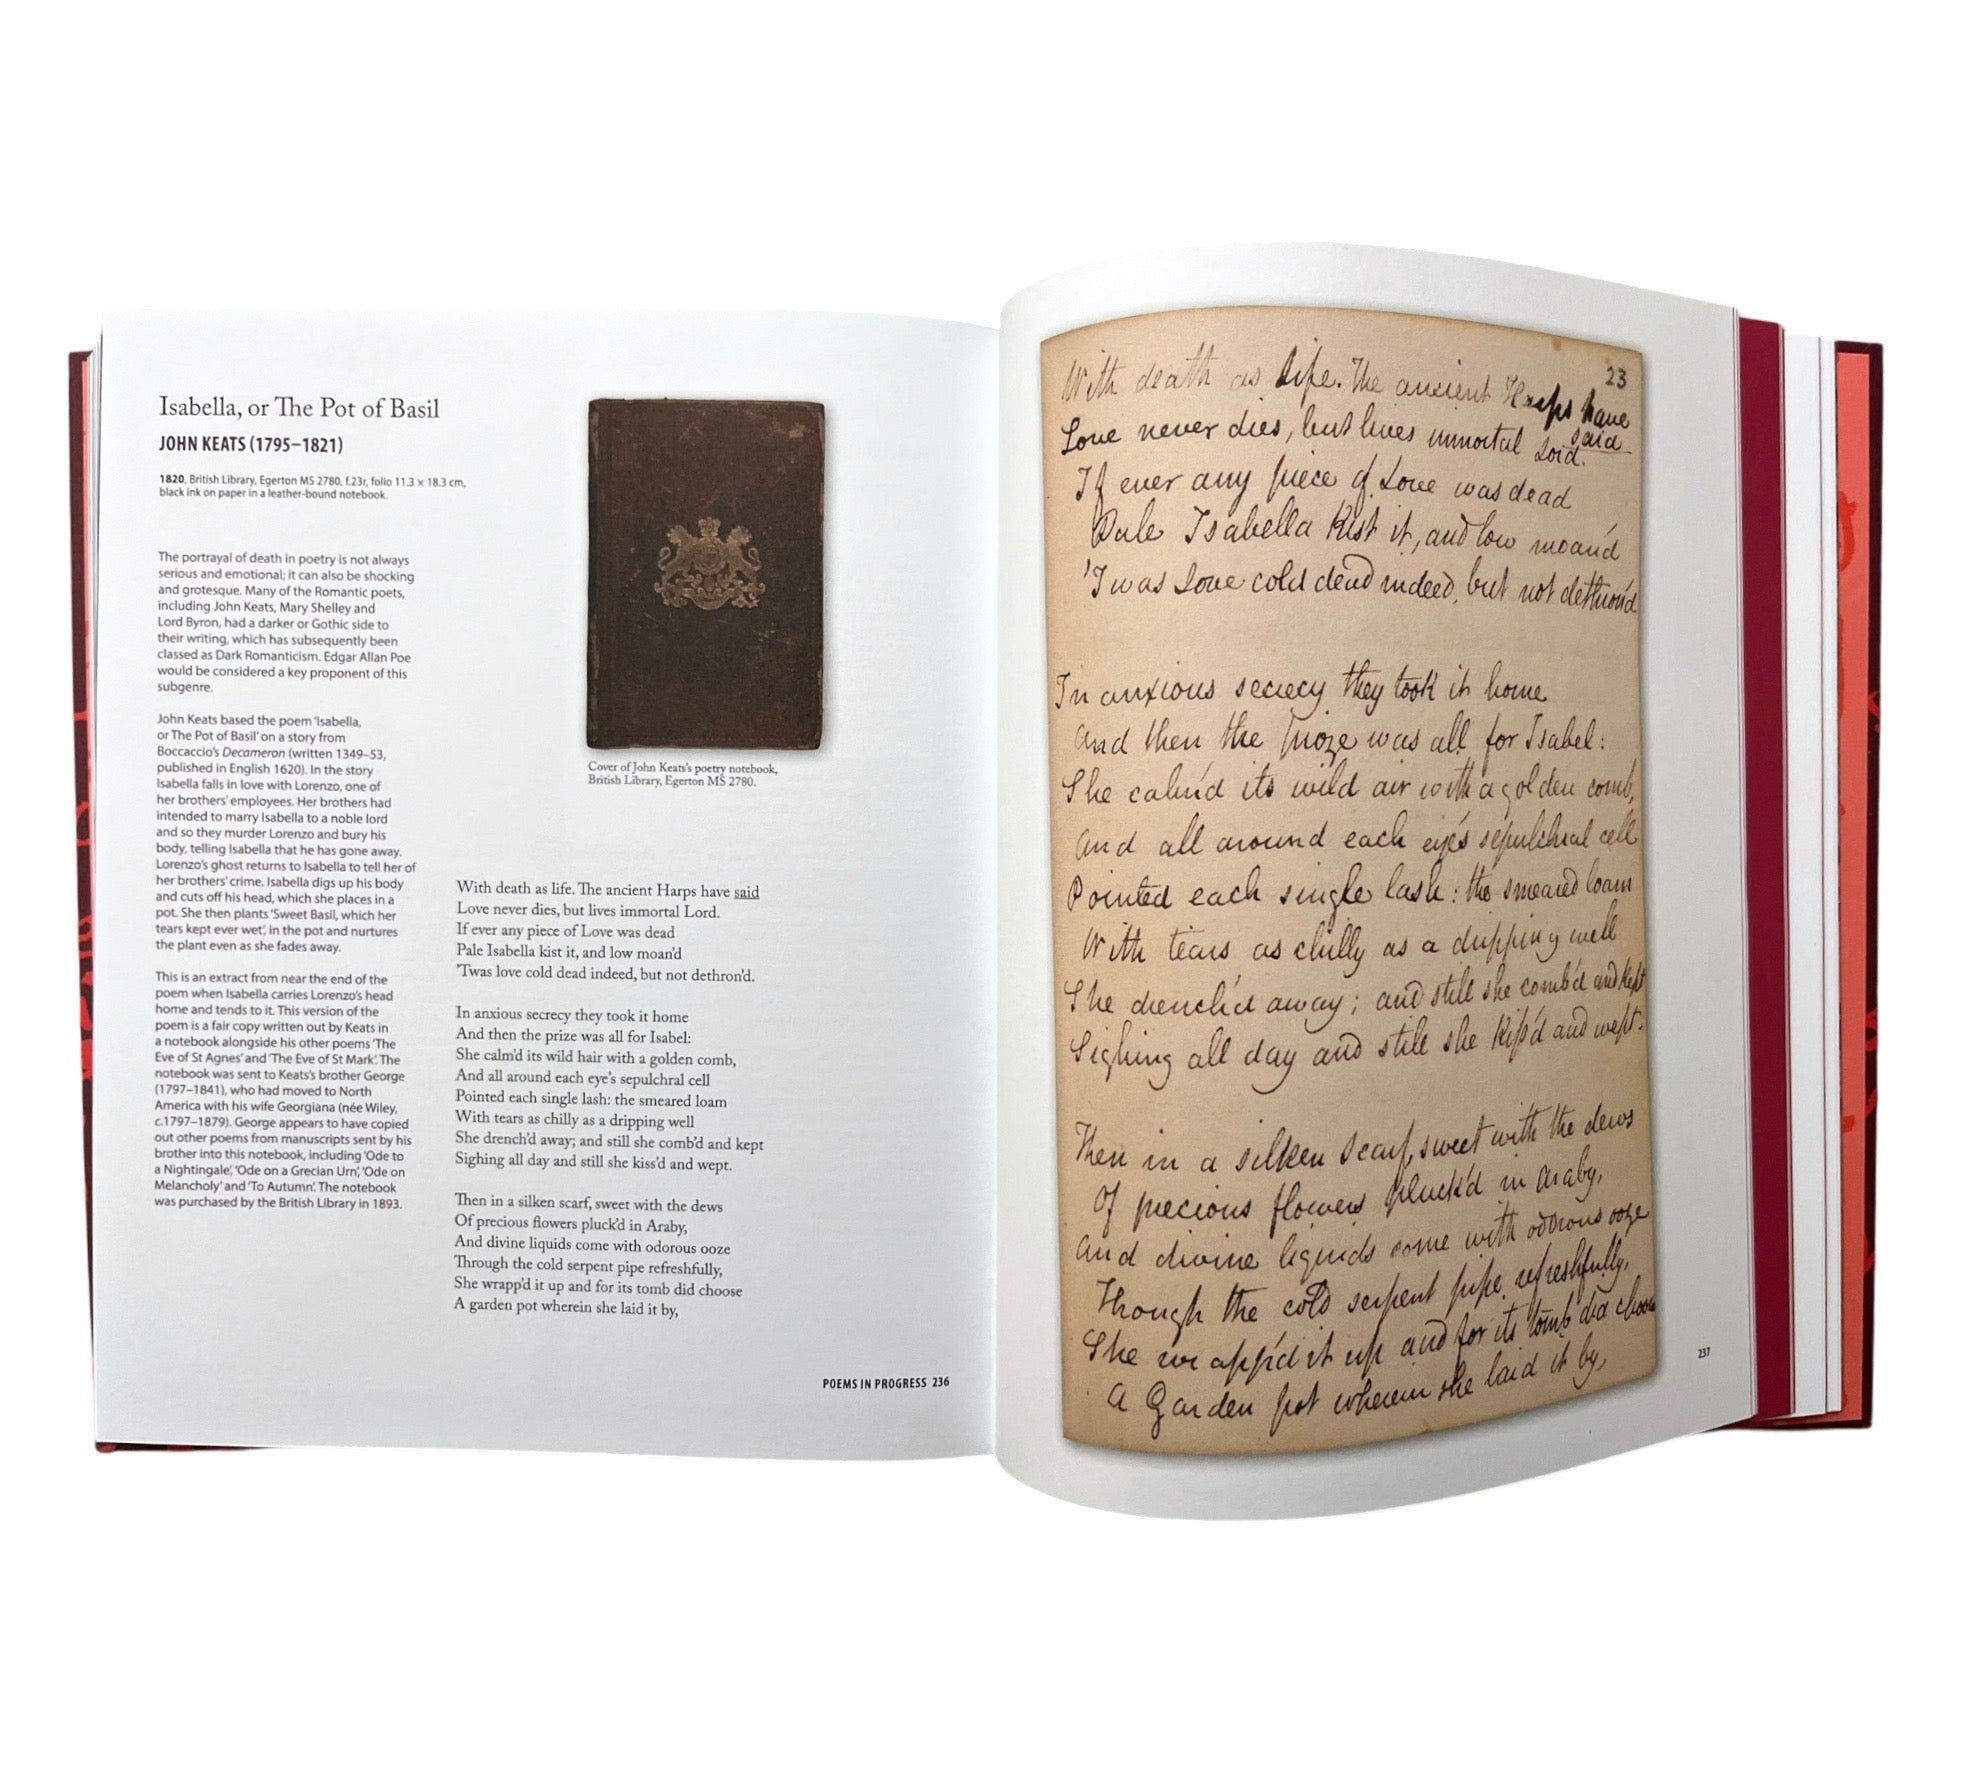 Isabella, or The Pot of Basil
JOHN KEATS (1795–1821)
1820, British Library, Egerton MS 2780, f.23r, folio 11.3 × 18.3 cm,
black ink on paper in a leather-bound notebook.
The portrayal of death in poetry is not always
serious and emotional; it can also be shocking
and grotesque. Many of the Romantic poets,
including John Keats, Mary Shelley and
Lord Byron, had a darker or Gothic side to
their writing, which has subsequently been
classed as Dark Romanticism. Edgar Allan Poe
would be considered a key proponent of this
subgenre.
John Keats based the poem 'Isabella,
or The Pot of Basil' on a story from
Boccaccio's Decameron (written 1349–53,
published in English 1620). In the story
Isabella falls in love with Lorenzo, one of
her brothers' employees. Her brothers had
intended to marry Isabella to a noble lord
and so they murder Lorenzo and bury his
body, telling Isabella that he has gone away.
Lorenzo's ghost returns to Isabella to tell her of
her brothers' crime. Isabella digs up his body
and cuts off his head, which she places in a
pot. She then plants 'Sweet Basil, which her
tears kept ever wet', in the pot and nurtures
the plant even as she fades away.
This is an extract from near the end of the
poem when Isabella carries Lorenzo's head
home and tends to it. This version of the
poem is a fair copy written out by Keats in
a notebook alongside his other poems 'The
Eve of St Agnes' and 'The Eve of St Mark'. The
notebook was sent to Keats's brother George
(1797–1841), who had moved to North
America with his wife Georgiana (née Wiley,
c.1797–1879). George appears to have copied
out other poems from manuscripts sent by his
brother into this notebook, including 'Ode to
a Nightingale', 'Ode on a Grecian Urn', 'Ode on
Melancholy' and 'To Autumn'. The notebook
was purchased by the British Library in 1893.
Cover of John Keats's poetry notebook,
British Library, Egerton MS 2780.
With death as life. The ancient Harps have said
Love never dies, but lives immortal Lord.
If ever any piece of Love was dead
Pale Isabella kist it, and low moan'd
'Twas love cold dead indeed, but not dethron'd.
In anxious secrecy they took it home
And then the prize was all for Isabel:
She calm'd its wild hair with a golden comb,
And all around each eye's sepulchral cell
Pointed each single lash: the smeared loam
With tears as chilly as a dripping well
She drench'd away; and still she comb'd and kept
Sighing all day and still she kiss'd and wept.
Then in a silken scarf, sweet with the dews
Of precious flowers pluck'd in Araby,
And divine liquids come with odorous ooze
Through the cold serpent pipe refreshfully,
She wrapp'd it up and for its tomb did choose
A garden pot wherein she laid it by,
POEMS IN PROGRESS 236
23
With death as Life. The ancient Harps have
said
Love never dies, but lives immortal Lord.
If ever any piece of Love was dead
Pale Isabella kist it, and low moan'd
'Twas Love cold dead indeed, but not dethron'd
In anxious secrecy they took it home
And then the Prize was all for Isabel:
She calm'd its wild air with a golden comb,
And all around each eye's sepulchral cell
Pointed each single lash: the smeared loam
With tears as chilly as a dripping well
She drench'd away; and still she comb'd and kept
Sighing all day and still she kiss'd and wept.
Then in a silken scarf, sweet with the dews
Of precious flowers pluck'd in Araby,
And divine liquids come with odorous ooze
Through the cold serpent pipe refreshfully,
She wrapp'd it up and for its tomb did choose
A Garden pot wherein she laid it by,
237